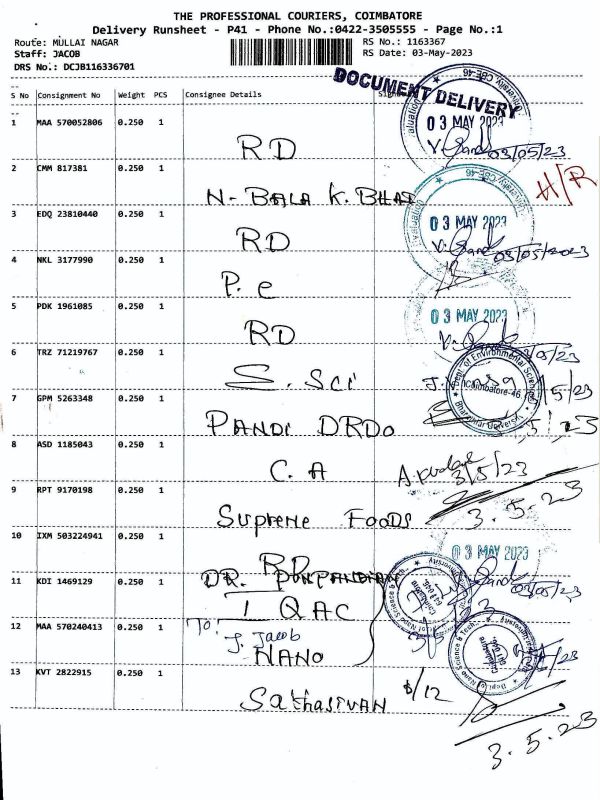 THE PROFESSIONAL COURIERS, COIMBATORE
Delivery Runsheet - P41 - Phone No.:0422-3505555 - Page No.:1
Route: MULLAI NAGAR
RS No.: 1163367
Staff: JACOB
RS Date: 03-May-2023
DRS No.: DCJB116336701
DOCUMENT DELIVERY
S No Consignment No Weight PCS Consignee Details
1 MAA 570052806 0.250 1 RD 03 MAY 2023 03/05/23
2 CMM 817381 0.250 1 N- BALA K. BHAI H/R
3 EDQ 23810440 0.250 1 RD 03 MAY 2023 03/05/2023
4 NKL 3177990 0.250 1 P. e
5 PDK 1961085 0.250 1 RD 03 MAY 2023
6 TRZ 71219767 0.250 1 S. Sci Dept. of Environmental Sciences Coimbatore-46 Bharathiar University
7 GPM 5263348 0.250 1 PANDI DRDO
8 ASD 1185043 0.250 1 C. A 3/5/23
9 RPT 9170198 0.250 1 Supreme Foods 3.5.23
10 IXM 503224941 0.250 1 RD 03 MAY 2023 03/05/23
11 KDI 1469129 0.250 1 DR. PONPANDIAN
I QAC
12 MAA 570240413 0.250 1 To: J. Jacob
NANO
13 KVT 2822915 0.250 1 Sathasivan 6/12
3.5.23